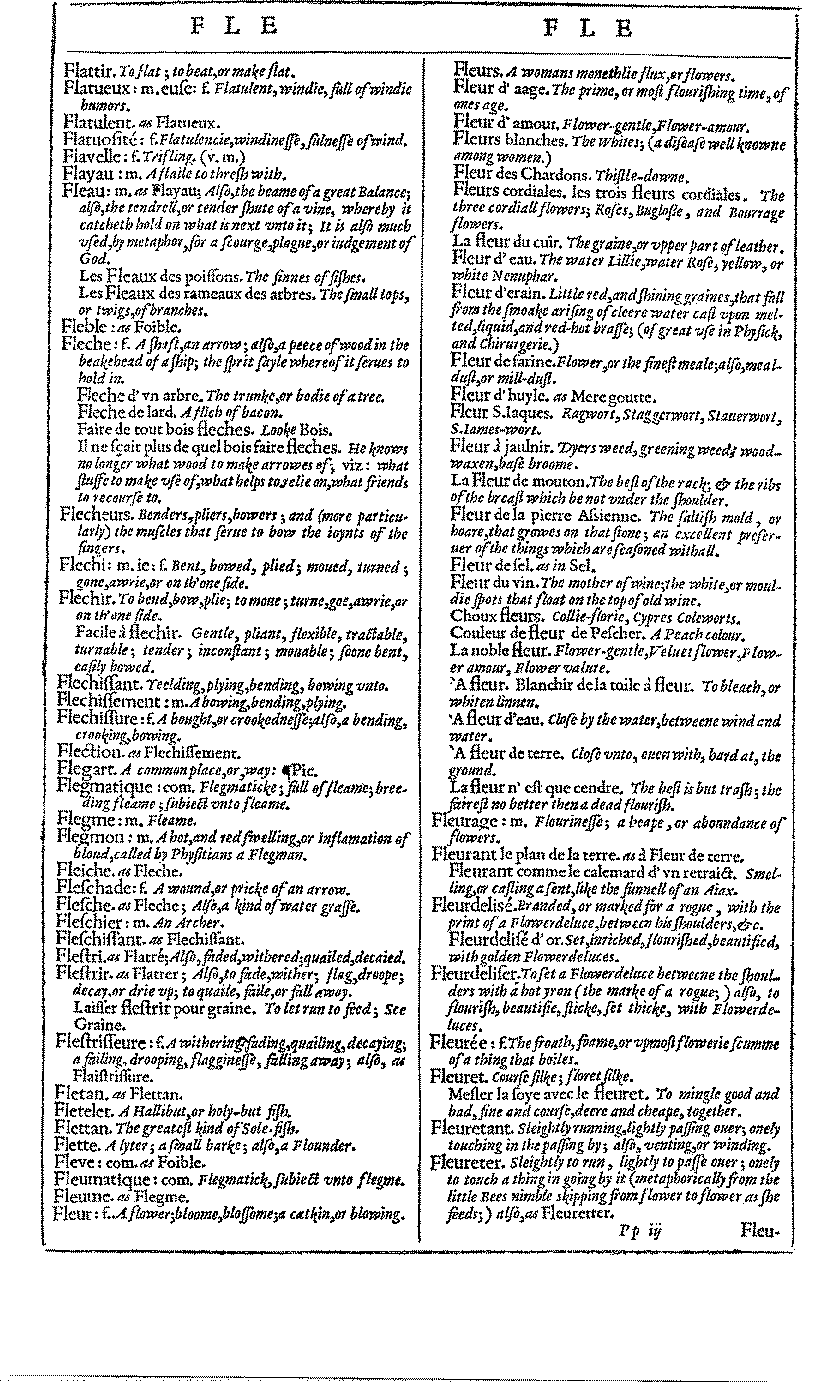 F L E
F L E
Flattir. To flat; to beat, or make flat.
Flatueux: m. euse: f. Flatulent, windie, full of windie
humors.
Flatulent. as Flatueux.
Flatuosité: f. Flatuloncie, windinesse, fulnesse of wind.
Flavelle: f. Trifling. (v. m.)
Flayau: m. A flaile to thresh with.
Fleau: m. as Flayau; Also, the beame of a great Balance;
also, the tendrell, or tender shute of a vine, whereby it
catcheth hold on what is next vnto it; It is also much
vsed, by metaphor, for a scourge, plague, or iudgement of
God.
Les Fleaux des poissons. The finnes of fishes.
Les Fleaux des rameaux des arbres. The small tops,
or twigs, of branches.
Fleble: as Foible.
Fleche: f. A shaft, an arrow; also, a peece of wood in the
beakehead of a ship; the sprit sayle whereof it serues to
hold in.
Fleche d'vn arbre. The trunke, or bodie of a tree.
Fleche de lard. A flich of bacon.
Faire de tout bois fleches. Looke Bois.
Il ne sçait plus de quel bois faire fleches. He knows
no longer what wood to make arrowes of; viz: what
stuffe to make vse of, what helps to relie on, what friends
to recourse to.
Flecheurs. Benders, pliers, bowers; and (more particu-
larly) the muscles that serue to bow the ioynts of the
fingers.
Flechi: m. ie: f. Bent, bowed, plied; moued, turned;
gone, awrie, or on th'one side.
Flechir. To bend, bow, plie; to moue; turne, goe, awrie, or
on th'one side.
Facile à flechir. Gentle, pliant, flexible, tractable,
turnable; tender; inconstant; mouable; soone bent,
easily bowed.
Flechissant. Yeelding, plying, bending, bowing vnto.
Flechissement: m. A bowing, bending, plying.
Flechissure: f. A bought, or crookednesse; also, a bending,
crooking, bowing.
Flection. as Flechissement.
Flegart. A common place, or, way: ¶Pic.
Flegmatique: com. Flegmaticke; full of fleame; bree-
ding fleame; subiect vnto fleame.
Flegme: m. Fleame.
Flegmon: m. A hot, and red swelling, or Inflamation of
bloud, called by Physitians a Flegman.
Fleiche. as Fleche.
Fleschade: f. A wound, or pricke of an arrow.
Flesche. as Fleche; Also, a kind of water grasse.
Fleschier: m. An Archer.
Fleschissant. as Flechissant.
Flestri. as Flatré; Also, faded, withered; quailed, decaied.
Flestrir. as Flatrer; Also, to fade, wither; flag, droope;
decay, or drie vp; to quaile, faile, or fall away.
Laisser flestrir pour graine. To let run to seed; See
Graine.
Flestrisseure: f. A withering, fading, quailing, decaying;
a failing, drooping, flagginesse, falling away; also, as
Flaistrissure.
Fletan. as Flettan.
Fletelet. A Hallibut, or holy-but fish.
Flettan. The greatest kind of Sole-fish.
Flette. A lyter; a small barke; also, a Flounder.
Fleve: com. as Foible.
Fleumatique: com. Flegmatick, subiect vnto flegme.
Fleume. as Flegme.
Fleur: f. A flower; bloome, blossome; a catkin, or blowing.
Fleurs. A womans monethlie flux, or flowers.
Fleur d'aage. The prime, or most flourishing time, of
ones age.
Fleur d'amour. Flower-gentle, Flower-amour.
Fleurs blanches. The Whites; (a disease well knowne
among women.)
Fleur des Chardons. Thistle-downe.
Fleurs cordiales. les trois fleurs cordiales. The
three cordiall flowers; Roses, Buglosse, and Bourrage
flowers.
La fleur du cuir. The graine, or vpper part of leather.
Fleur d'eau. The water Lillie, water Rose, yellow, or
white Nenuphar.
Fleur d'erain. Little red, and shining graines, that fall
from the smoake arising of cleere water cast vpon mel-
ted, liquid, and red-hot brasse; (of great vse in Physick,
and Chirurgerie.)
Fleur de farine. Flower, or the finest meale; also, meal-
dust, or mill-dust.
Fleur d'huyle. as Meregoutte.
Fleur S. Iaques. Ragwort, Staggerwort, Stauerwort,
S. Iames-wort.
Fleur à jaulnir. Dyers weed, greening weed; wood-
waxen, base broome.
La Fleur de mouton. The best of the rack; & the ribs
of the breast which be not vnder the shoulder.
Fleur de la pierre Assienne. The saltish mold, or
hoare, that growes on that stone; an excellent preser-
uer of the things which are seasoned withall.
Fleur de sel. as in Sel.
Fleur du vin. The mother of wine; the white, or moul-
die spots that float on the top of old wine.
Choux fleurs. Collie-florie, Cypres Coleworts.
Couleur de fleur de Pescher. A Peach colour.
La noble fleur. Flower-gentle, Veluet flower, Flow-
er amour, Flower valure.
'A fleur. Blanchir de la toile à fleur. To bleach, or
whiten linnen.
'A fleur d'eau. Close by the water, betweene wind and
water.
'A fleur de terre. Close vnto, euen with, hard at, the
ground.
La fleur n'est que cendre. The best is but trash; the
fairest no better then a dead flourish.
Fleurage: m. Flourinesse; a heape, or aboundance of
flowers.
Fleurant le plan de la terre. as à Fleur de terre.
Fleurant comme le calemard d'vn retraict. Smel-
ling, or casting a sent, like the funnell of an Aiax.
Fleurdelisé. Branded, or marked for a rogue, with the
print of a Flowerdeluce, between his shoulders, &c.
Fleurdelisé d'or. Set, inriched, flourished, beautified,
with golden Flowerdeluces.
Fleurdeliser. To set a Flowerdeluce betweene the shoul-
ders with a hot yron (the marke of a rogue;) also, to
flourish, beautifie, sticke, set thicke, with Flowerde-
luces.
Fleurée: f. The froath, foame, or vpmost flowerie scumme
of a thing that boiles.
Fleuret. Course silke; floret silke.
Mesler la soye avec le fleuret. To mingle good and
bad, fine and course, deere and cheape, together.
Fleuretant. Sleightly running, lightly passing ouer; onely
touching in the passing by; also, venting, or winding.
Fleureter. Sleightly to run, lightly to passe ouer; onely
to touch a thing in going by it (metaphorically from the
little Bees nimble skipping from flower to flower as she
feeds;) also, as Fleuretter.
Pp iij Fleu-